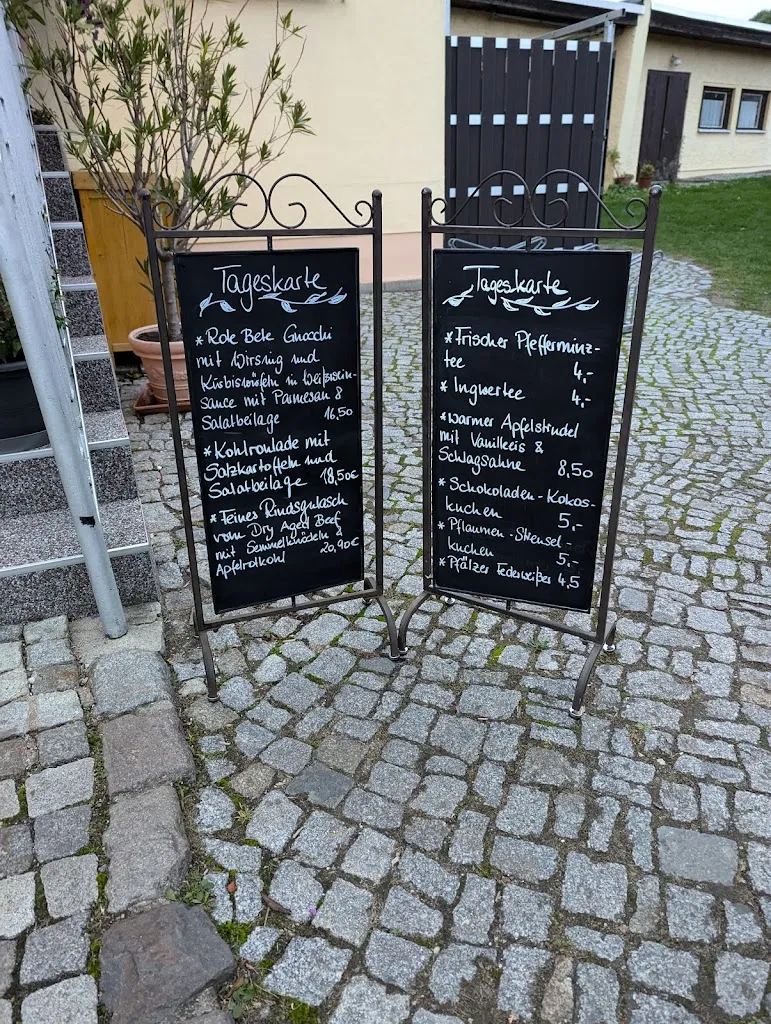 Tageskarte
* Rote Bete Gnocchi
mit Wirsing und
Kürbiswürfeln in Weißwein-
sauce mit Parmesan &
Salatbeilage 16,50
* Kohlroulade mit
Salzkartoffeln und
Salatbeilage 18,50€
* Feines Rindsgulasch
vom Dry Aged Beef
mit Semmelknödeln &
Apfelrotkohl 20,90€
Tageskarte
* Frischer Pfefferminz-
tee 4,-
* Ingwertee 4,-
* warmer Apfelstrudel
mit Vanilleeis &
Schlagsahne 8,50
* Schokoladen-Kokos-
kuchen 5,-
* Pflaumen-Streusel-
kuchen 5,-
* Pfälzer Federweißer 4,5